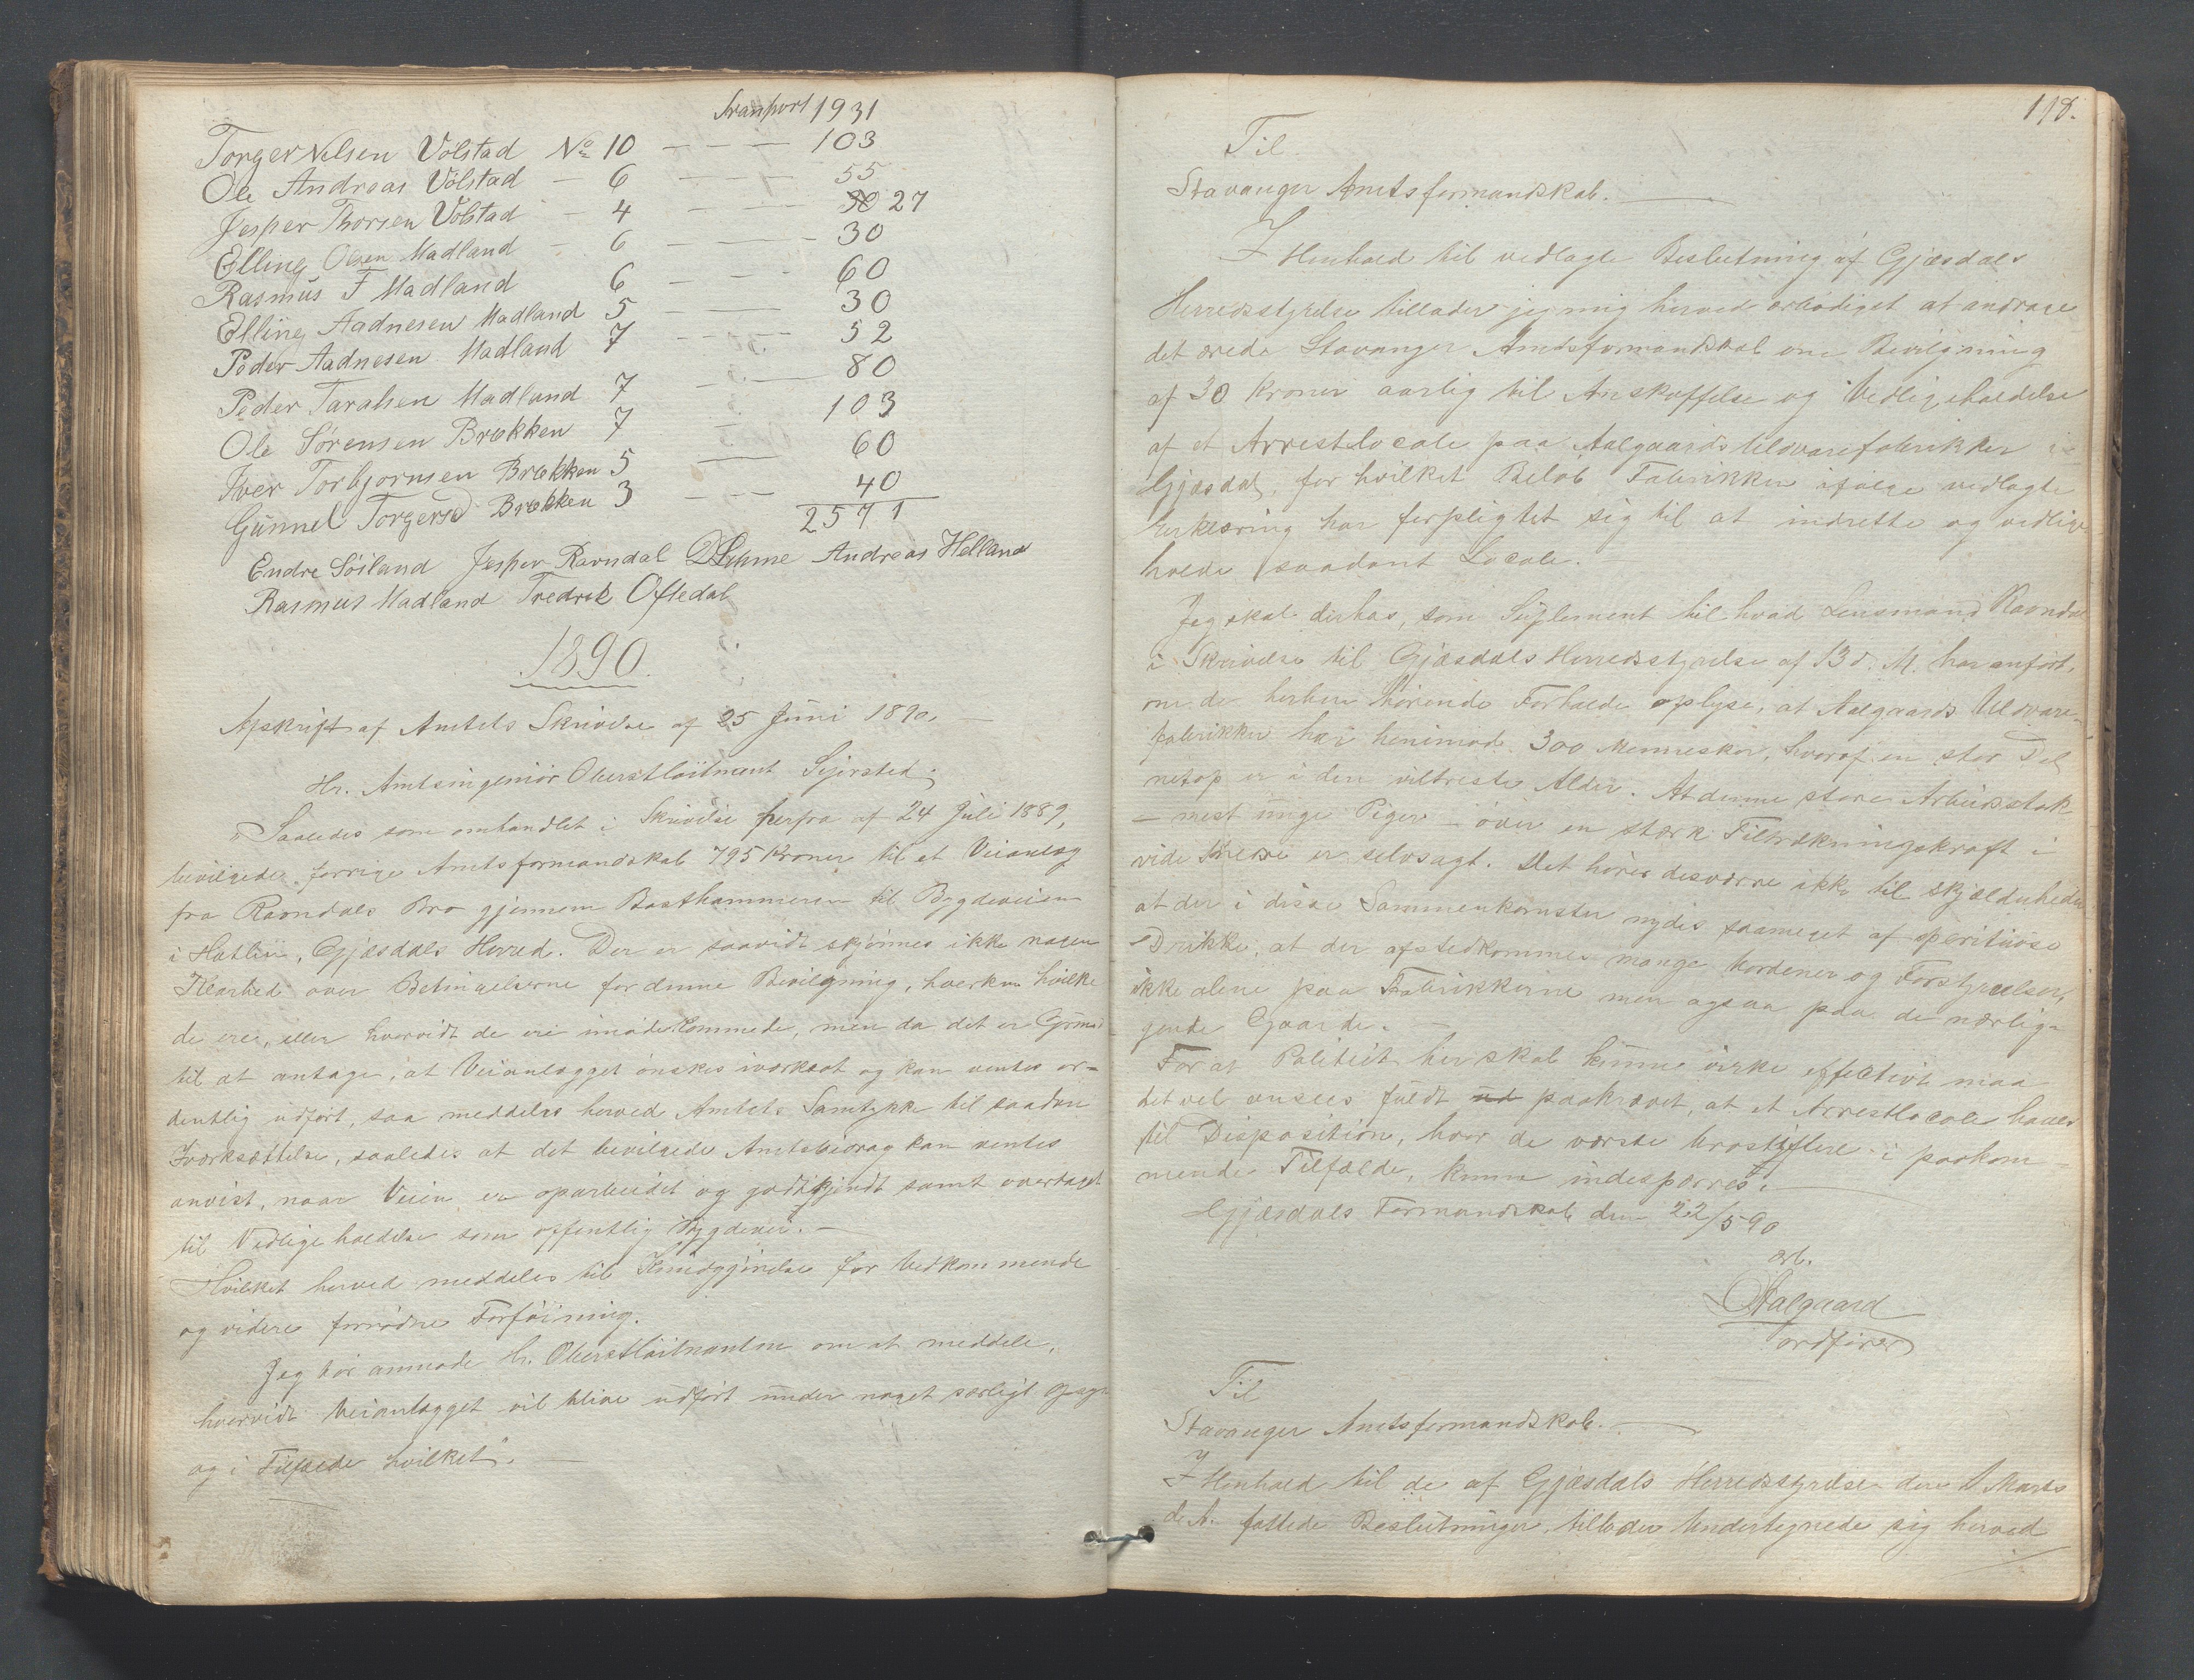 Transport 1931
Torger Nilsen Volstad No 10 — — — 103
Ole Andreas Volstad — 6 — — — 55
Jesper Thorsen Volstad — 4 — — — 30 27
Elling Olsen Madland — 6 — — — 30
Rasmus T Madland 6 — — — 60
Elling Aadnesen Madland 5 — — — 30
Peder Aadnesen Madland 7 — — — 52
Peder Taralsen Madland 7 — — 80
Ole Sörensen Brekken 7 — 103
Iver Torbjornsen Brekken 5 — 60
Gunnel Torgersd Brekken 3 — — — 40
2571
Endre Söiland Jesper Ravndal Andreas Helland
Rasmus Madland Fredrik Oftedal
1890.
Afskrift af Amtets Skrivelse af 25 Juni 1890. —
Hr. Amtsingeniör Oberstlöitnant Sejersted.
"Saaledes som omhandlet i Skrivelse herfra af 24 Juli 1889,
bevilgede forrige Amtsformandskab 795 Kroner til et Veianlæg
fra Ravndals Bro gjennem Basthammeren til Bygdeveien
i Hatlin, Gjæsdals Herred. Der er saavidt skjönnes ikke nogen
Klarhed over Betingelserne for denne Bevilgning, hverken hvilke
de ere, eller hvorvidt de ere imödekommede, men da det er Grund
til at antage, at Veianlægget önskes iværksat og kan ventes or=
dentlig udfört, saa meddeles herved Amtets Samtykke til saadan
Iværksættelse, saaledes at det bevilgede Amtsbidrag kan ventes
anvist, naar Veien er oparbeidet og godkjendt samt overtaget
til Vedligeholdelse som offentlig Bygdevei. —
Hvilket herved meddeles til Kundgjörelse for Vedkommende
og videre fornödne Forföining.
Jeg bör anmode Hr. Oberstlöitnanten om at meddele,
hvorvidt Veianlægget vil blive udfört under noget særligt Opsyn
og i Tilfælde hvilket". —
118.
Til
Stavanger Amtsformandskab. —
I Henhold til vedlagte Beslutning af Gjæsdals
Herredsstyrelse tillader jeg mig herved ærbödigst at andrage
det ærede Stavanger Amtsformandskab om Bevilgning
af 30 Kroner aarlig til Anskaffelse og Vedligeholdelse
af et Arrestlocale paa Aalgaards Uldvarefabrikker i
Gjæsdal, for hvilket Belöb Fabrikken ifölge vedlagte
Erklæring har forpligtet sig til at indrette og vedlige
holde saadant Locale. —
Jeg skal derhos, som Suplement til hvad Lensmand Ravndal
i Skrivelse til Gjæsdals Herredsstyrelse af 13 d. M. har anfört,
om de herhen hörende Forholde oplyse, at Aalgaards Uldvare=
fabrikker har henimod 300 Mennesker, hvoraf en stor Del
netop er i den viltreste Alder. At denne store Arbeidsstok
— mest unge Piger — över en stærk Tiltrækningskraft i
vide Kredse er selvsagt. Det hörer desværre ikke til Skjældenheder
at der i disse Sammenkomster nydes saameget af sperituöse
Drikke, at der afstedkommes mange Uordener og Forstyrrelser,
ikke alene paa Fabrikkerne men ogsaa paa de nærlig=
gende Gaarde. —
For at Politiet her skal kunne virke effectivt maa
det vel ansees fuldt ud paakrævet, at et Arrestlocale haves
til Disposition, hvor de værste Urostiftere i paakom=
mende Tilfælde, kunne indespærres.
Gjæsdals Formandskab den 22/5 90
ærb.
Aalgaard
Ordförer
Til
Stavanger Amtsformandskab. —
I Henhold til de af Gjæsdals Herredsstyrelse den 1 Marts
d. A. fattede Beslutninger, tillader Undertegnede sig herved